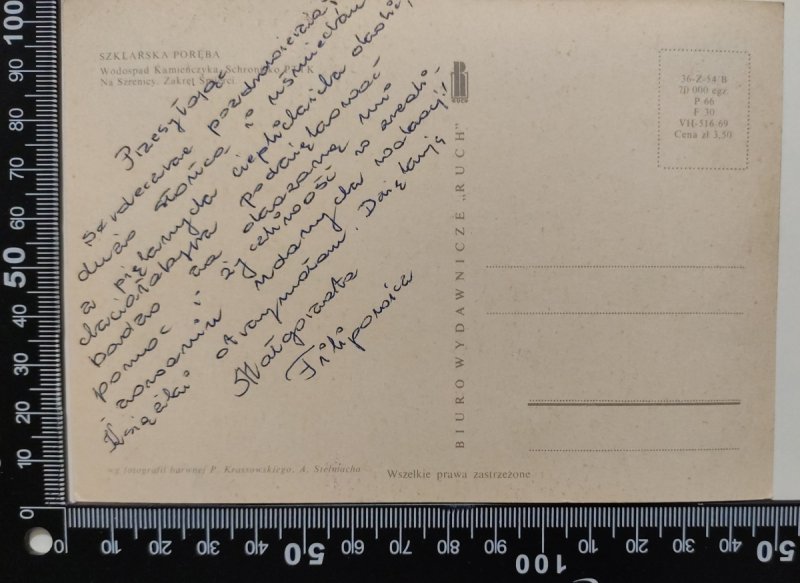 SZKLARSKA PORĘBA
Wodospad Kamieńczyka. Schronisko PTTK
Na Szrenicy. Zakręt Śmierci.
Przesyłając
serdeczne pozdrowienia,
dużo słońca i uśmiechów
z pięknych cieplickich okolic,
chciałabym podziękować
bardzo za okazaną mi
pomoc i życzliwość w zreali-
zowaniu wakacji!!
Książki otrzymałam. Dziękuję
Małgorzata
Filipowicz
wg fotografii barwnej P. Krassowskiego, A. Stelmacha
Wszelkie prawa zastrzeżone
BIURO WYDAWNICZE „RUCH”
RUCH
36-Z-54/B
70 000 egz.
P 66
F 30
VH-516/69
Cena zł 3,50
100
90
80
70
60
50
40
30
20
10
0
0 10 20 30 40 50 60 70 80 90 100 10 20 30 40 50